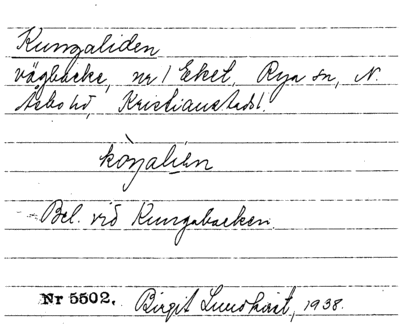 Kungaliden
vägbacke, nr 1 Eket, Rya sn, N.
Åsbo hd, Kristianstadsl.
kòŋalìen
Bel. vid Kungabacken.
Nr 5502. Birgit Lundkvist, 1938.